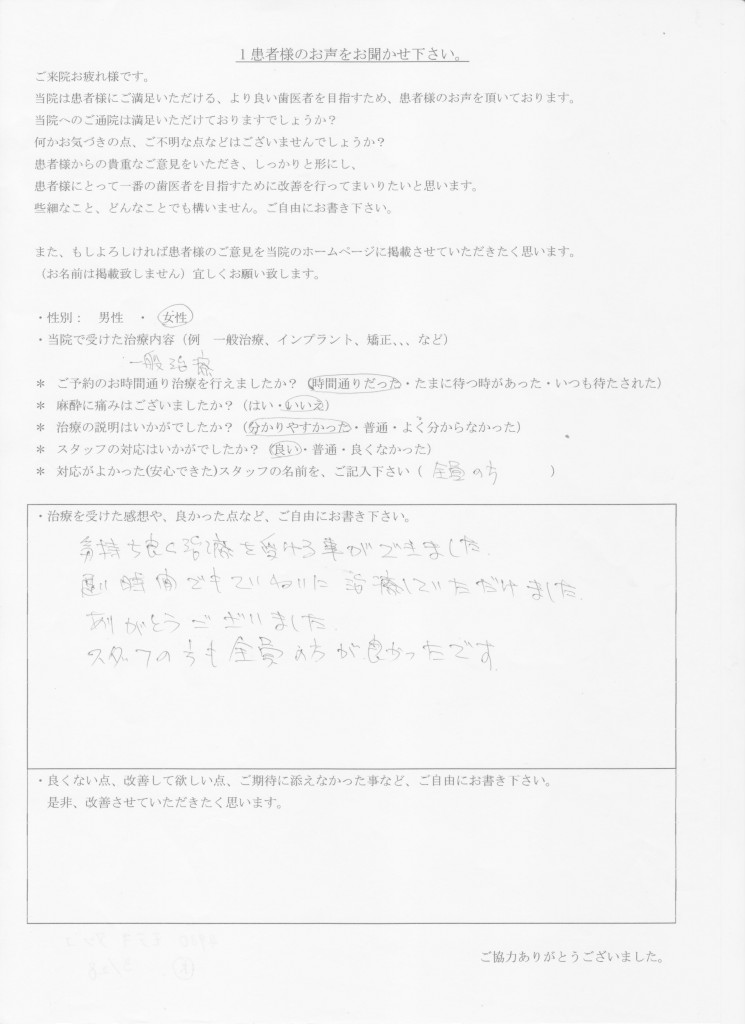 1患者様のお声をお聞かせ下さい。
ご来院お疲れ様です。
当院は患者様にご満足いただける、より良い歯医者を目指すため、患者様のお声を頂いております。
当院へのご通院は満足いただけておりますでしょうか？
何かお気づきの点、ご不明な点などはございませんでしょうか？
患者様からの貴重なご意見をいただき、しっかりと形にし、
患者様にとって一番の歯医者を目指すために改善を行ってまいりたいと思います。
些細なこと、どんなことでも構いません。ご自由にお書き下さい。
また、もしよろしければ患者様のご意見を当院のホームページに掲載させていただきたく思います。
（お名前は掲載致しません）宜しくお願い致します。
・性別：　男性　・　女性
・当院で受けた治療内容（例　一般治療、インプラント、矯正、、、など）
一般治療
＊　ご予約のお時間通り治療を行えましたか？（時間通りだった・たまに待つ時があった・いつも待たされた）
＊　麻酔に痛みはございましたか？（はい・いいえ）
＊　治療の説明はいかがでしたか？（分かりやすかった・普通・よく分からなかった）
＊　スタッフの対応はいかがでしたか？（良い・普通・良くなかった）
＊　対応がよかった(安心できた)スタッフの名前を、ご記入下さい（　全員の方　）
・治療を受けた感想や、良かった点など、ご自由にお書き下さい。
気持ち良く治療を受ける事ができました.
時間でもていねいに治療していただけました.
ありがとうございました.
スタッフの方も全員の方が良かったです.
・良くない点、改善して欲しい点、ご期待に添えなかった事など、ご自由にお書き下さい。
是非、改善させていただきたく思います。
ご協力ありがとうございました。